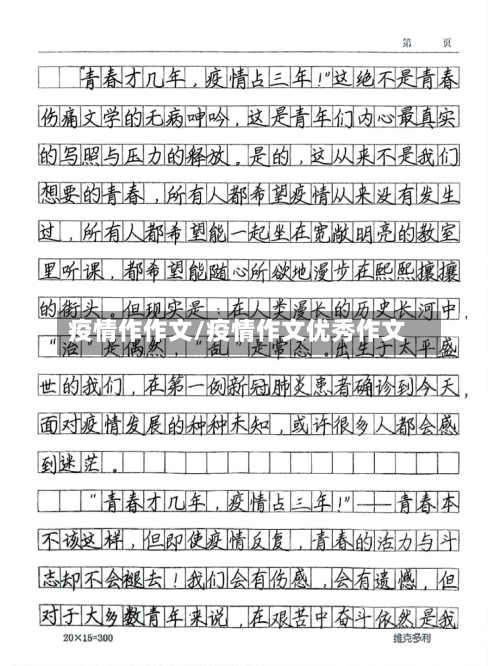 第 页
“青春才几年，疫情占三年！”这绝不是青春
伤痛文学的无病呻吟，这是青年们内心最真实
的写照与压力的释放。是的，这从来不是我们
想要的青春，所有人都希望疫情从来没有发生
过，所有人都希望能一起坐在宽敞明亮的教室
里听课，都希望能随心所欲地漫步在熙熙攘攘
的街头。但现实是：在人类漫长的历史长河中，
疫情作作文/疫情作文优秀作文
“治”是偶然，“乱”是常态。出生于太平盛
世的我们，在第一例新冠肺炎患者确诊到今天，
面对疫情发展的种种未知，或许很多人都会感
到迷茫。
“青春才几年，疫情占三年！”——青春本
不该这样，但即使疫情反复，青春的活力与斗
志却不会褪去！我们会有伤感，会有遗憾，但
对于大多数青年来说，在艰苦中奋斗依然是我
20×15=300 维克多利